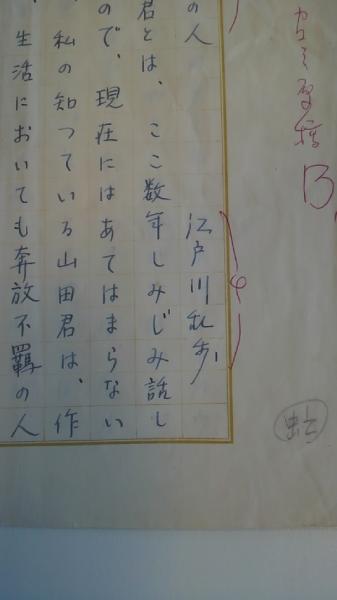 B
の人
江戸川乱歩
君とは、ここ数年しみじみ話し
ので、現在にはあてはまらない
私の知つている山田君は、作
生活においても奔放不羈の人